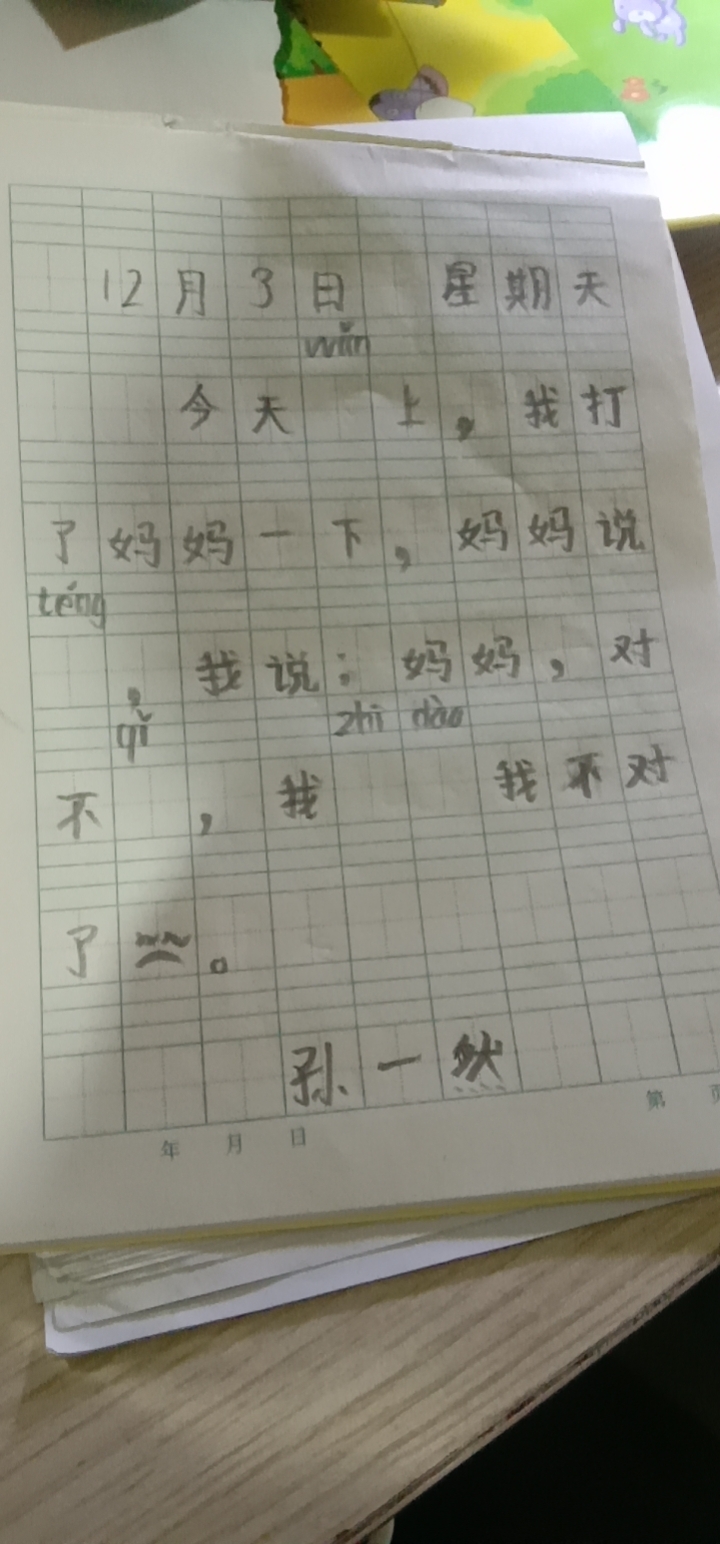 12月3日 星期天
wǎn
今天 上，我打
了妈妈一下，妈妈说
téng
，我说：妈妈，对
qǐ zhī dào
不 ，我 我不对
了 。
孙一然
年 月 日 第 页